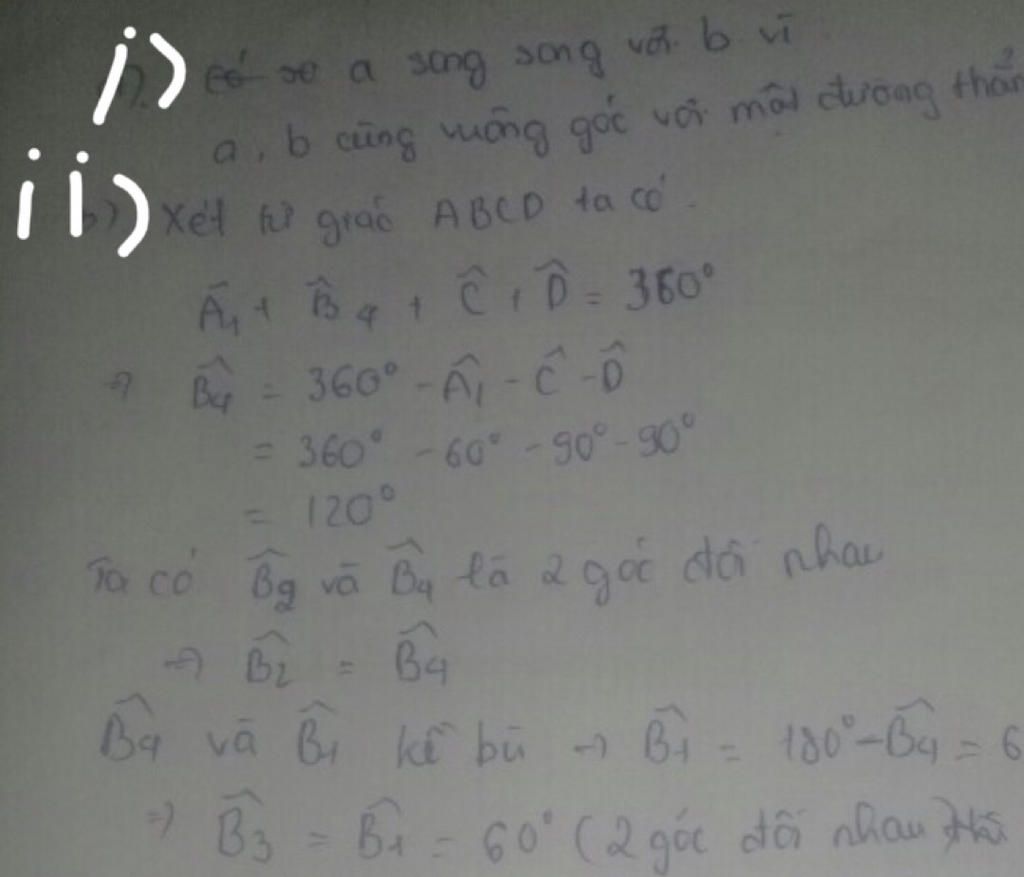 i) a song song với b vì
a, b cùng vuông góc với một đường thẳn
ii) Xét tứ giác ABCD ta có.
Â₁ + B̂₄ + Ĉ + D̂ = 360°
=> B̂₄ = 360° - Â₁ - Ĉ - D̂
= 360° - 60° - 90° - 90°
= 120°
Ta có B̂₂ và B̂₄ là 2 góc đối nhau
=> B̂₂ = B̂₄
B̂₄ và B̂₁ kề bù => B̂₁ = 180° - B̂₄ = 6
=> B̂₃ = B̂₁ = 60° (2 góc đối nhau)